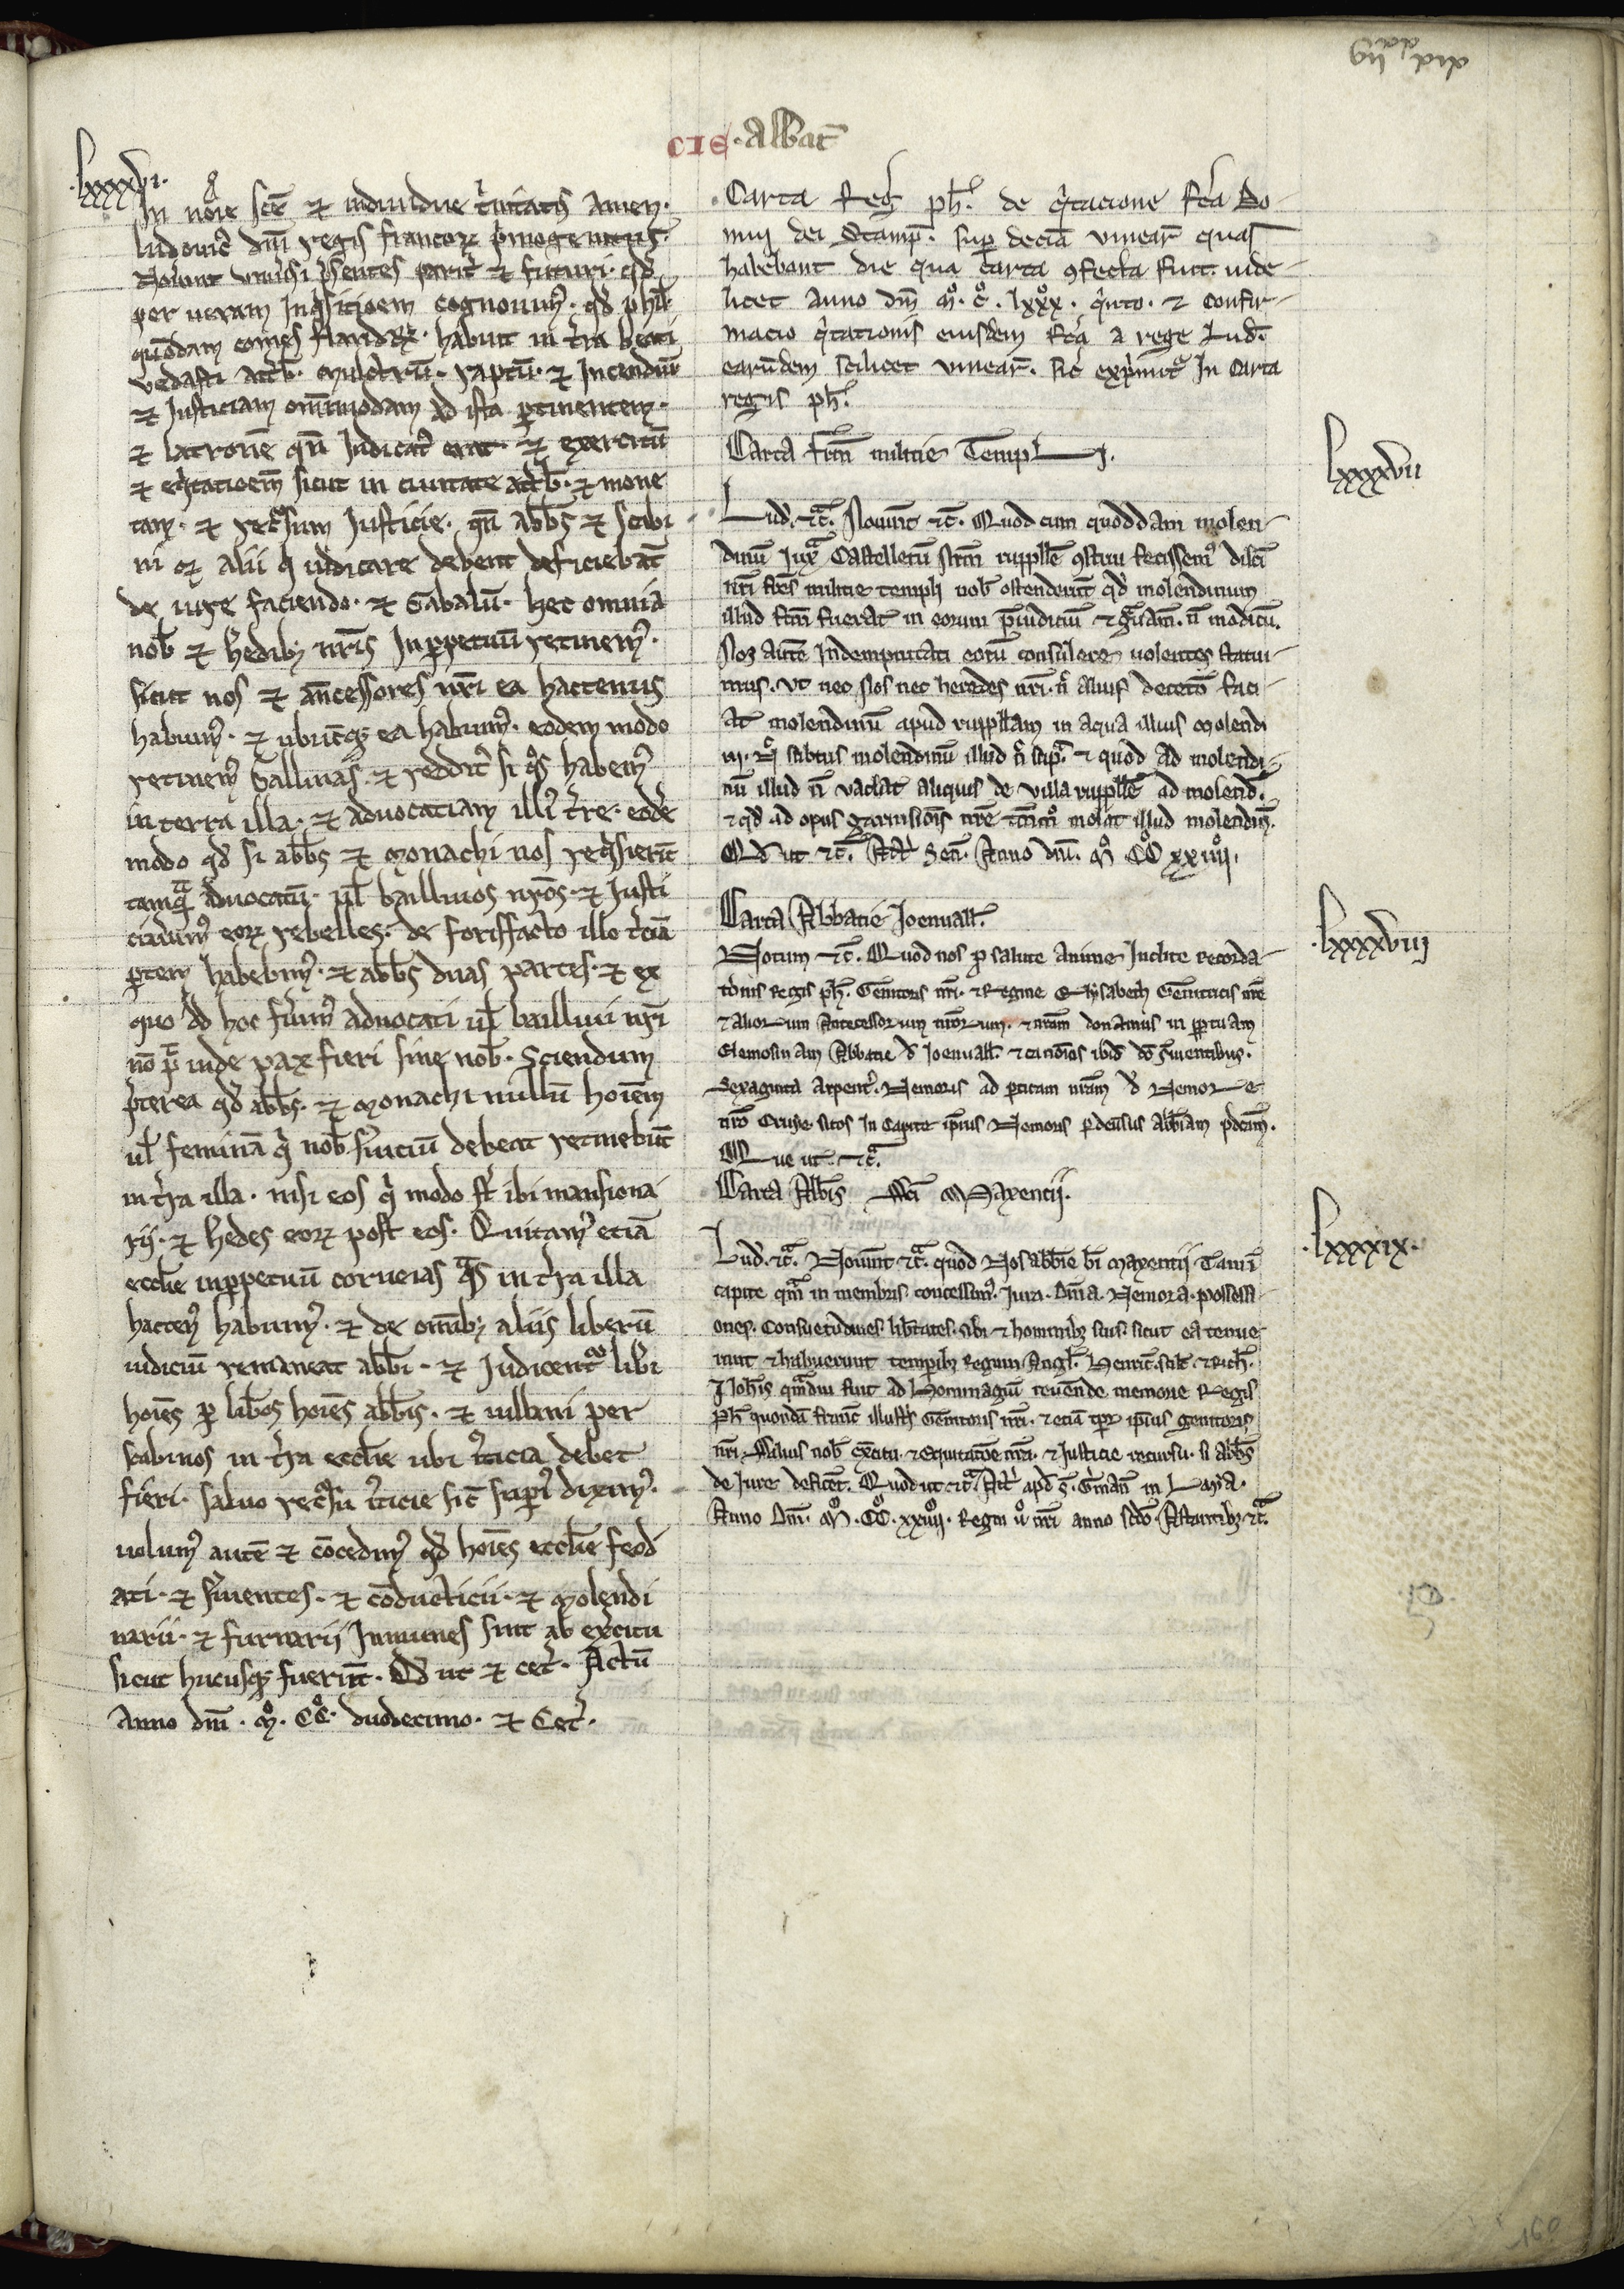 CIE · Abbat̄
·lxxxxvi·
In no͞ie sc̄e ⁊ indiuidue t̓nitatis Amen·
ludouic̓ dn̄i regis francoꝝ p̓mogenitus·
Nou̓int vniu̓si p̓sentes parit̓ ⁊ futuri· qd̓
per ueram Inq̓sic̄ioem cognouim̓· qd̓ phil̓
quōdam comes flandꝝ· habuit in t̓ra beati
vedasti attb̄· mulctrū· raptū· ⁊ Incendiū
⁊ Justiciam om̄imodam ad ista ꝑtinentem·
⁊ latronē qn̄ Judicat̓ erat· ⁊ exercitū
⁊ eq̓tatioem̄ sicut in ciuitate attb̄· ⁊ mone
tam· ⁊ rec̓sum Justicie· qn̄ abb̄s ⁊ scabi
ni ⁊ alii q̓ iudicare debent deficiebāt
de iure faciendo· ⁊ Gabalū· hec omnia
nob̄ ⁊ h̓edibꝫ nr̄is Inꝑpetuū retinem̓·
sicut nos ⁊ an̄cessores nr̄i ea hactenus
habuim̓· ⁊ ubicūqꝫ ea habuim̓· eodem modo
retinem̓ Gallinas· ⁊ reddit̓ si q̓s habem̓
in terra illa· ⁊ aduocatiam illi̓ t̓re· eodē
modo qd̓ si abb̄s ⁊ monachi nos req̓sierīt
tamqᷓ aduocatū· ul̓ bailliuos nr̄os· ⁊ Justi
ciauim̓ eoꝝ rebelles· de forisfacto illo t̓ciā
ꝑtem habebim̓· ⁊ abb̄s duas partes· ⁊ ex
quo ad hoc fu̓im̓ aduocati ul̓ bailliui nr̄i
nō p̄t inde pax fieri sine nob̄· Sciendum
p̓terea qd̓ abb̄s· ⁊ monachi nullū hoīem
ul̓ feminā q̓ nob̄ s̓uiciū debeat retinebūt
in t̓ra illa· nisi eos q̓ modo sr̄ ibi mansiona
rii· ⁊ h̓edes eoꝝ post eos· Quitam̓ etiā
ecclīe inꝑpetuū corueias qᷓs in t̓ra illa
hacten̓ habuim̓· ⁊ de om̄ibꝫ aliis liberū
iudiciū remaneat abb̄i· ⁊ Judicent̓ lib̓i
hoīes ꝑ lib̄os hoīes abb̄is· ⁊ uillani per
scabinos in t̓ra ecclīe ubi iusticia debet
fieri· saluo rec̓su iusticie sic̄ sup̓i̓ dixim̓·
uolum̓ autē ⁊ cōcedim̓ qd̓ hoīes ecclīe feod
ati· ⁊ s̓uientes· ⁊ cōducticii· ⁊ molendi
narii· ⁊ furnarii Inmunes sint ab exc̓itu
sicut hucusqꝫ fuerīt· Qd̓ ut ⁊ cet̓· Actū
Anno dn̄i· m̊· CC̊· duodecimo· ⁊ Cet̓·
Carta Reg̓ ph̓· de q̓tacione fc̄a Do-
mui dei Stamp̄· sup̄ deciā vinear̄ quas
habebant die qua carta ꝯfecta fuit· uide-
licet anno dn̄i m̊· c̊· lxxx̊· q̓nto· ⁊ confir-
macio q̓tationis eiusdem fc̄a a rege Lud̄·
earūdem scilicet vinear̄· sic̓ exp̓imit̓ In Carta
regis ph̓·
Carta fr̄m milicie Templi·
lxxxxvii
Lud̓· ⁊c̄· Nou̓int ⁊c̄· Quod cum quoddam molen-
dinū Juxᷓ Castelletū sitū ruppll̄e ꝯstrui fecissem̓ dilc̄i
nr̄i fr̄es milicie templi nob̄ ostenderūt qd̓ molendinum
illud fc̄m fuerat in eorum p̄iudiciū ⁊ gᷓuam̄· n̄ modicū·
Nos autē Indempnitati eorū consulere uolentes statui-
mus· Vt nec Nos nec heredes nr̄i· n̄ alius decetō faci-
at molendinū apud ruppellam in aqua illius molendi
ni· subtus molendinū illud n̄ supᷓ· ⁊ quod ad molendi-
nū illud n̄ vadat aliquis de villa ruppll̄e ad molend̓·
⁊ qd̓ ad opus garnisiōis nr̄e tm̄m̊ molat illud molendin̄·
Qd̓ ut ⁊c̄· Act̓ Sen̄· Anno dn̄i· m̊ CC̊ xxiiii̊·
Carta Abbatie Joenuall̓·
·lxxxxviii
Notum ⁊c̄· Quod nos ꝓ salute anime Inclite Recorda-
tōnis Regis ph̓· Genitoris nr̄i· ⁊ Regine Elysabeth Genitricis nr̄e
⁊ aliorum Antecessorum nr̄orum· ⁊ nr̄am donamus in ꝑpetuam
Elemosinam Abbatie d̓ Joenuall̓· ⁊ canōicis ibid̓ dō s̓uientibus·
Sexaginta Arpent̓· Nemoris ad ꝑticam nr̄am d̓ Nemore
nr̄o Cruye sitos In capite ip̄ius Nemoris ꝑ deūsus Abb̄iam p̓dcām·
Que ut ⁊c̄·
Carta Abb̄is Sc̄i Maxentii·
·lxxxxix·
Lud̓· ⁊c̄· Nou̓int ⁊c̄· quod Nos abb̄ie b̄i Maxentii Tam ī
capite qm̄ in membris concessim̓· Jura· Dn̄ia· Nemora· possessi-
ones· Consuetudines· lib̄tates· sibi ⁊ hominibꝫ suis· sicut ea tenue-
runt ⁊ habuerunt tempibꝫ Regum Angl̓· Henric̄· scil̓· ⁊ Rich̓·
⁊ Joh̄is qmdiu fuit ad Hommagiū reu̓ende memorie Regis
ph̓ quondā franc̄ illustris Genitoris nr̄i· ⁊ etiā tꝑr ip̄ius genitoris
nr̄i· Saluis nob̄ exc̓citu· ⁊ Equitatōe nr̄a· ⁊ Justicie recursu· si abb̄s
de Jure defic̓et· Quod ut ⁊c̄· Act̓ apd̓ S̄· G̓man̄ in Laya·
Anno Dn̄i· M̊· CC̊· xxiiii̊· Regni ů nr̄i anno sc̄do· Astantibꝫ ⁊c̄·
160